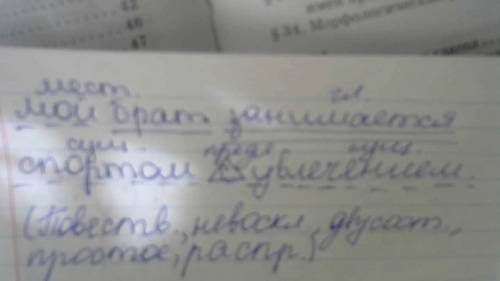 42
46
47
§ 34. Морфологически
мест. гл.
мой брат занимается
сущ. предл сущ.
спортом с увлечением.
(Повеств., невоскл., двусост.,
простое, распр.)